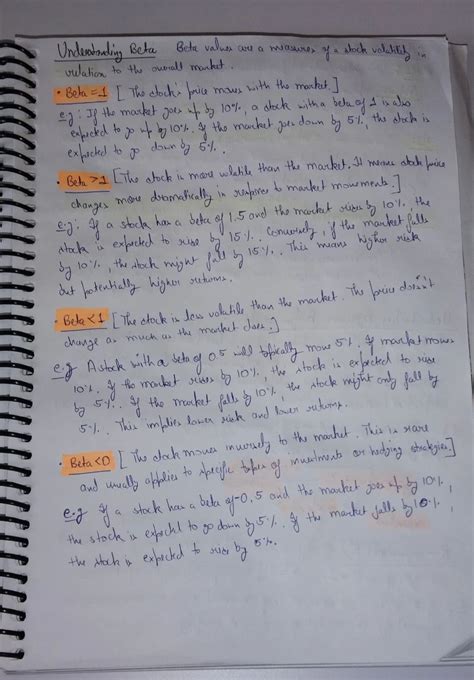 Understanding Beta Beta values are a measures of a stock volatility in
relation to the overall market.
• Beta = 1 [The stock's price moves with the market.]
e.g: If the market goes up by 10%, a stock with a beta of 1 is also
expected to go up by 10%. If the market goes down by 5%, the stock is
expected to go down by 5%.
• Beta >1 [The stock is more volatile than the market. It means stock price
changes more dramatically in response to market movements.]
e.g: If a stock has a beta of 1.5 and the market rises by 10%, the
stock is expected to rise by 15%. Conversely, if the market falls
by 10%, the stock might fall by 15%. This means higher risk
but potentially higher returns.
• Beta <1 [The stock is less volatile than the market. The price doesn't
change as much as the market does.]
e.g A stock with a beta of 0.5 will typically move 5% if market moves
10%. If the market rises by 10%, the stock is expected to rise
by 5%. If the market falls by 10%, the stock might only fall by
5%. This implies lower risk and lower returns.
• Beta <0 [The stock moves inversely to the market. This is rare
and usually applies to specific types of investments or hedging strategies]
e.g If a stock has a beta of -0.5 and the market goes up by 10%,
the stock is expected to go down by 5%. If the market falls by 10%,
the stock is expected to rise by 5%.